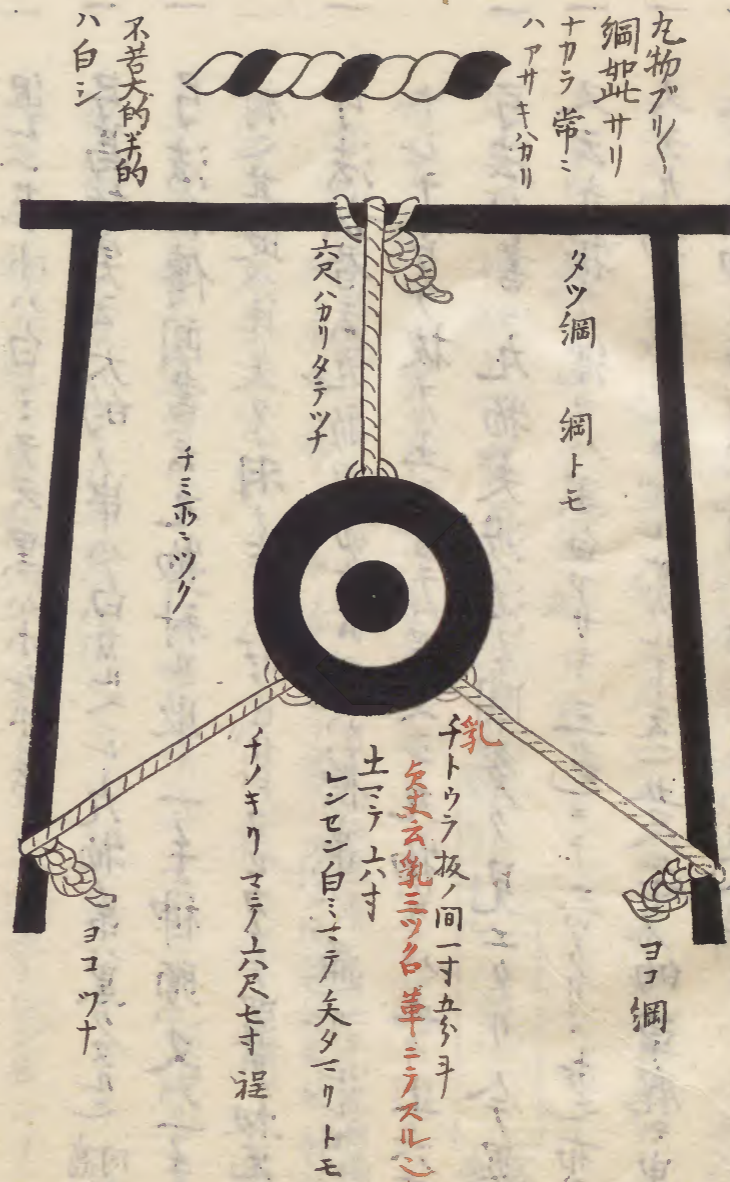 丸物ブリ〱
綱如此サリ
ナカラ 常ニ
ハアサキハカリ
不苦大的半的
ハ白シ
タツ綱 綱トモ
六尺ハカリタテツナ
チミ所ニツク
乳
チトウラ板ノ間一寸五分斗
貞丈云乳三ツ名革ニテスル也
土マテ六寸
レンセン白ミマテノ矢タマリトモ
チノキリマテノ六尺七寸程
ヨコ綱
ヨコツナ